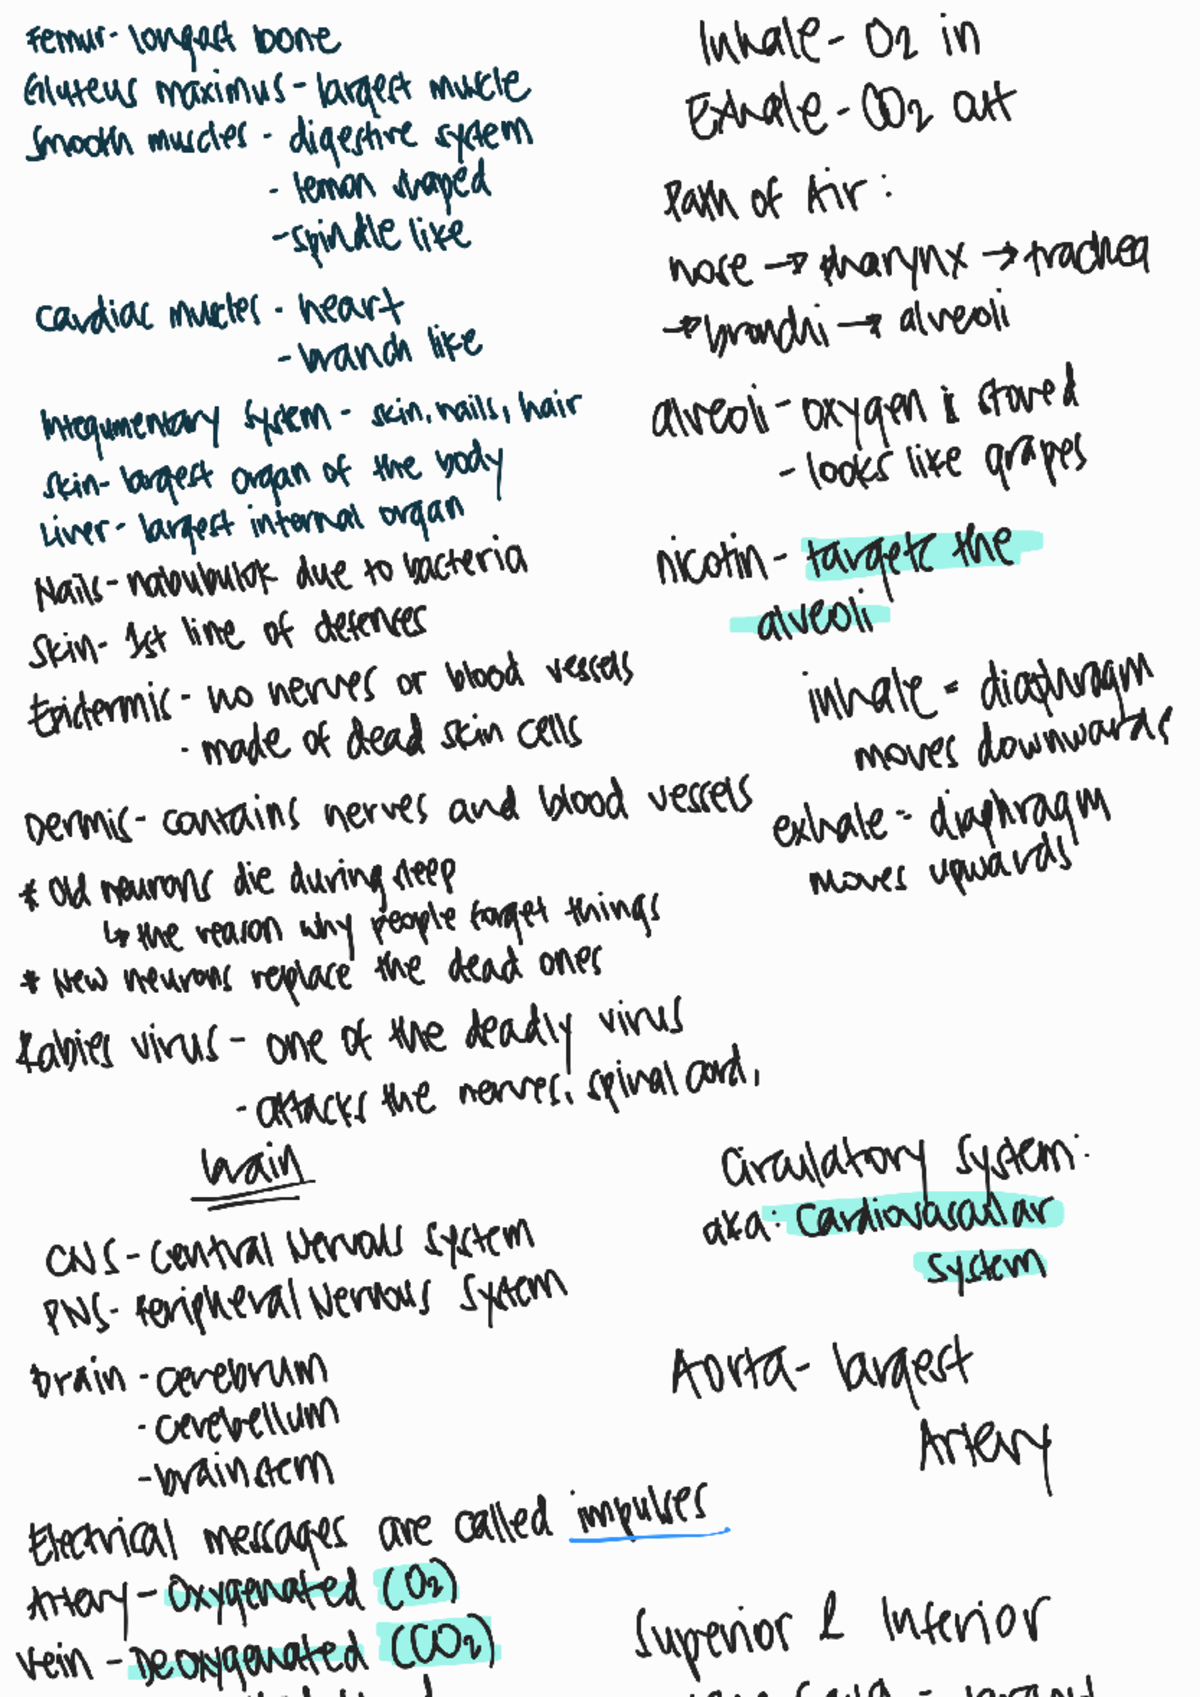 Femur- longest bone
Gluteus maximus - largest muscle
Smooth muscles - digestive system
- lemon shaped
- spindle like
Cardiac muscles - heart
- branch like
Integumentary System - skin, nails, hair
Skin- largest organ of the body
Liver- largest internal organ
Nails- nabubulok due to bacteria
Skin- 1st line of defenses
Epidermis - no nerves or blood vessels
- made of dead skin cells
Dermis- contains nerves and blood vessels
* Old neurons die during sleep
↳ the reason why people forget things
* New neurons replace the dead ones
Rabies virus - one of the deadly virus
- attacks the nerves, spinal cord,
brain
CNS - Central Nervous System
PNS- Peripheral Nervous System
Brain - cerebrum
- cerebellum
- brainstem
Electrical messages are called impulses
Artery - Oxygenated (O2)
Vein - Deoxygenated (CO2)
Inhale - O2 in
Exhale - CO2 out
Path of Air:
nose → pharynx → trachea
→ bronchi → alveoli
alveoli - oxygen is stored
- looks like grapes
nicotin - targets the
alveoli
inhale = diaphragm
moves downwards
exhale = diaphragm
moves upwards
Circulatory System:
aka: Cardiovascular
system
Aorta- largest
Artery
Superior & Inferior